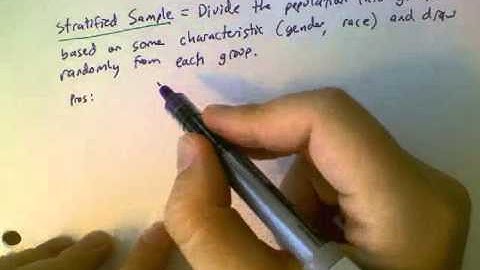 Stratified Sample = Divide the population into
based on some characteristic (gender, race) and draw
randomly from each group.
Pros: